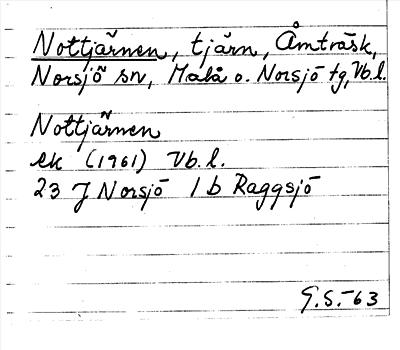 Nottjärnen, tjärn, Åmträsk,
Norsjö sn, Malå o. Norsjö tg, Vb.l.
Nottjärnen
ek (1961) Vb.l.
23 J Norsjö 1 b Raggsjö
G.S.-63